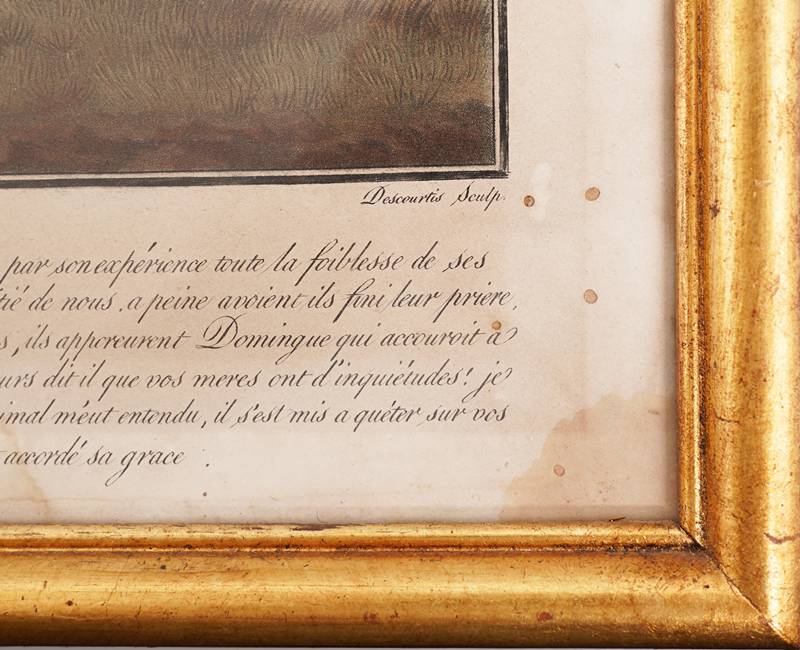 Descourtis Sculp.
par son expérience toute la foiblesse de ses
tié de nous, a peine avoient ils fini leur prière,
s, ils apperçurent Domingue qui accouroit à
urs dit il que vos meres ont d'inquiétudes! je
imal m'eut entendu, il s'est mis a quéter sur vos
accordé sa grace .